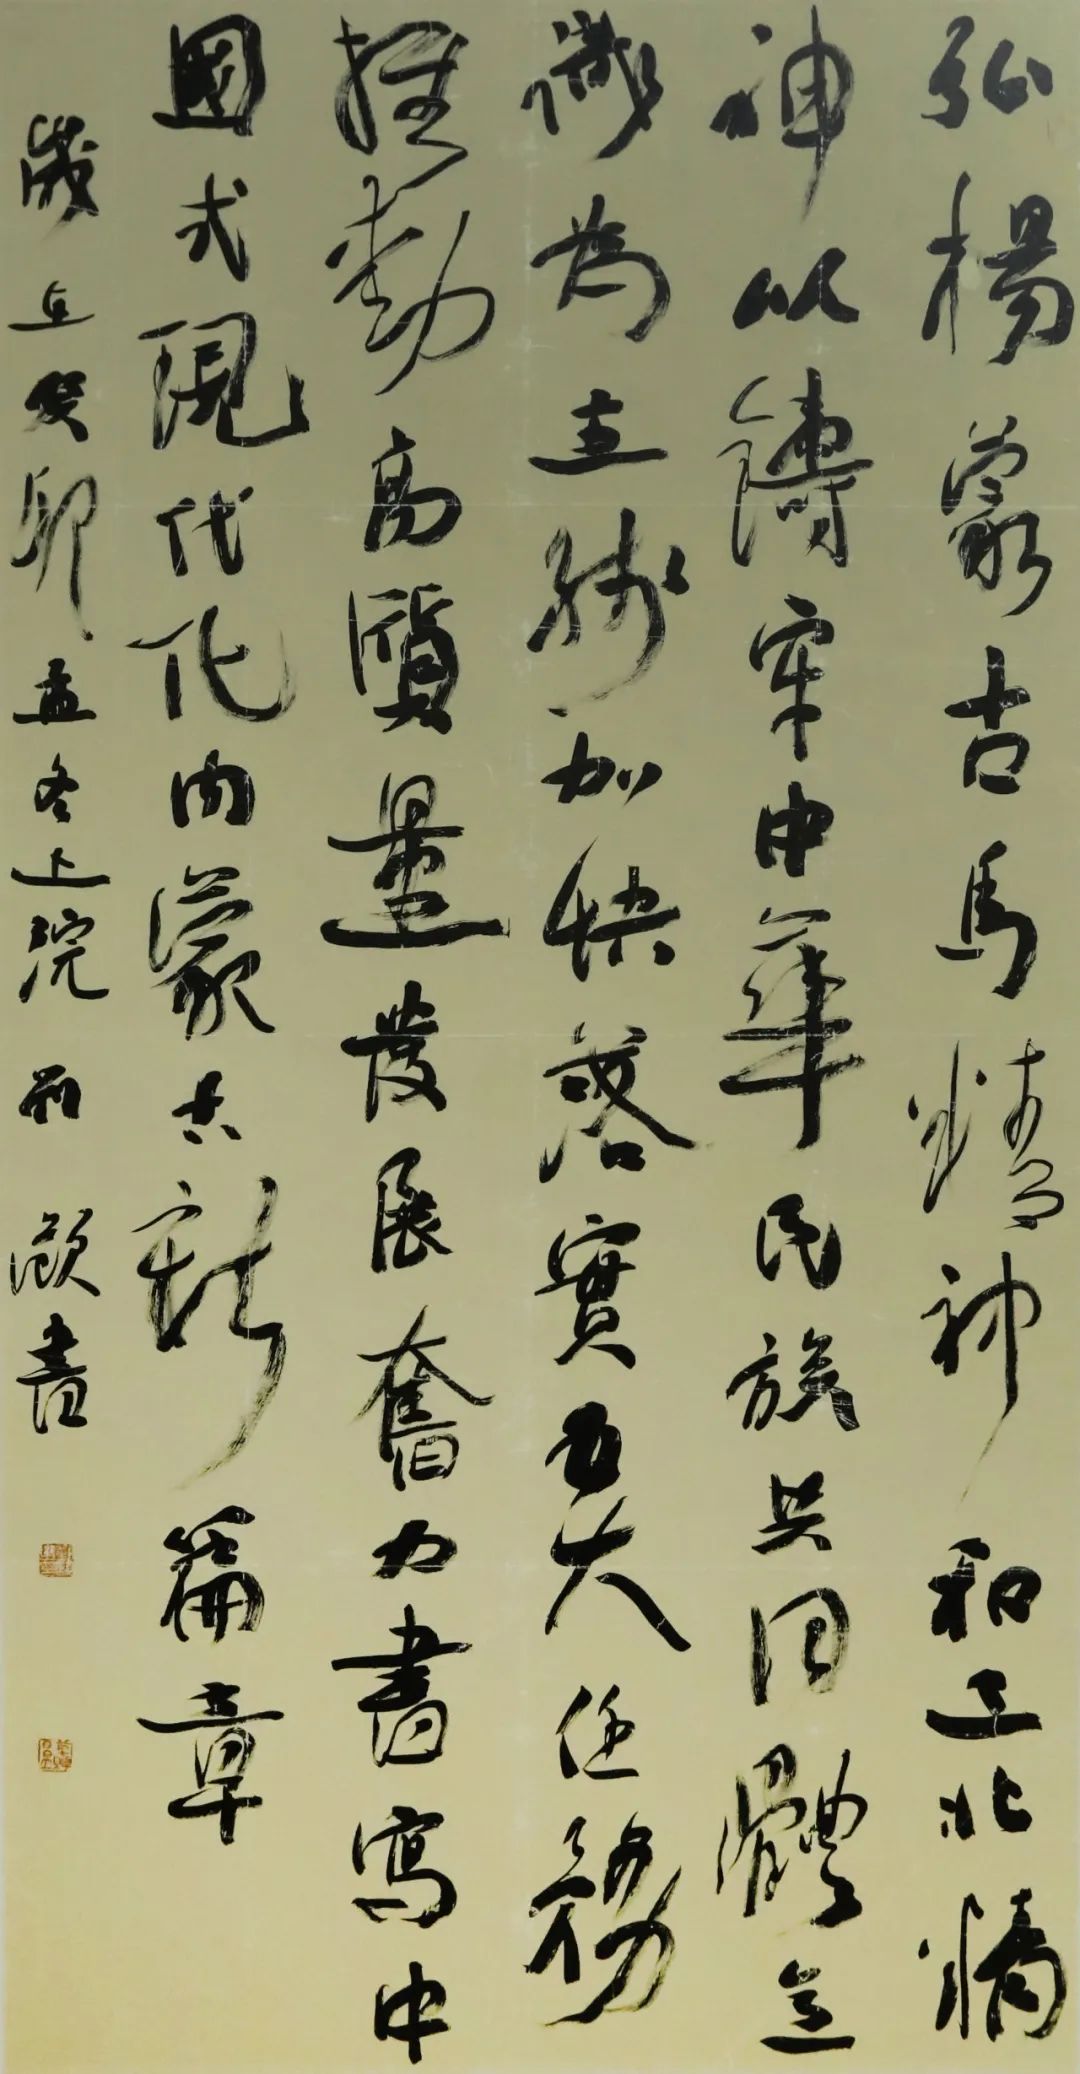 弘揚蒙古馬精神和三北精
神以鑄牢中華民族共同體意
識為主綫加快落實五大任務
推動高質量發展奮力書寫中
國式現代化內蒙古新篇章
歲在癸卯孟冬上浣書